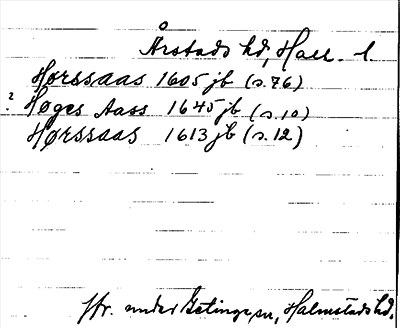 Årstads hd, Hall. l.
Horssaas 1605 jb (s. 76)
? Høges Aass 1645 jb (s. 10)
Hørssaas 1613 jb (s. 12)
Hr. under Getinge, sn, Halmstads hd.